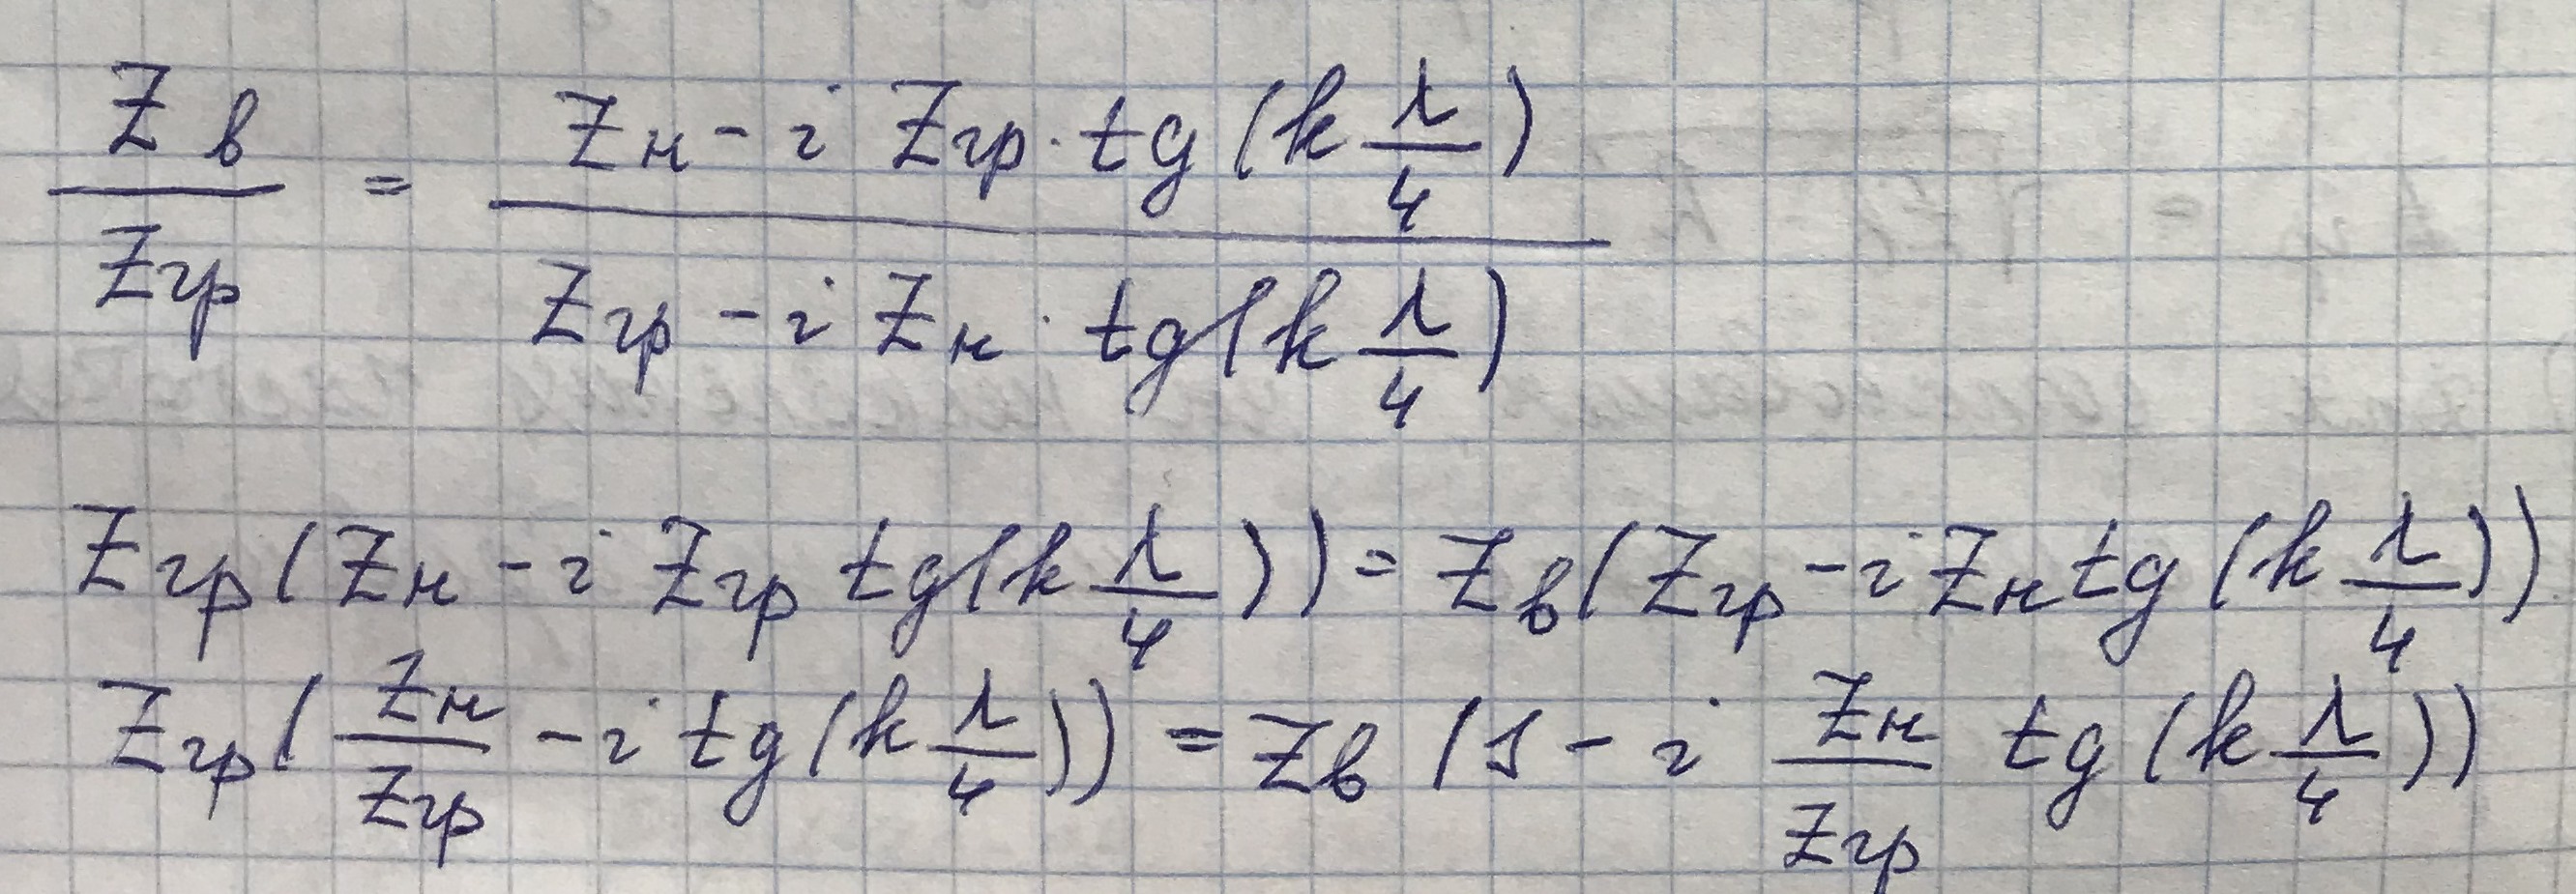 Zв/Zгр = (Zн - i Zгр · tg(k λ/4)) / (Zгр - i Zн · tg(k λ/4))
Zгр(Zн - i Zгр tg(k λ/4)) = Zв(Zгр - i Zн tg(k λ/4))
Zгр(Zн/Zгр - i tg(k λ/4)) = Zв (1 - i Zн/Zгр tg(k λ/4))